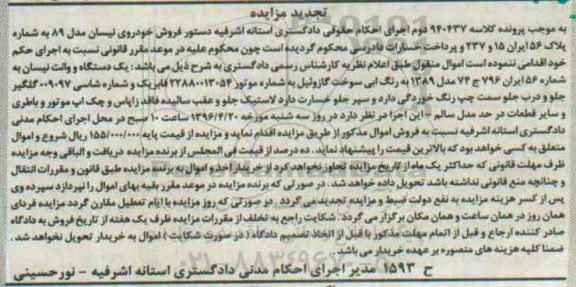 تجدید مزایده
به موجب پرونده کلاسه ۹۴۰۴۳۷ دوم اجرای احکام حقوقی دادگستری آستانه اشرفیه دستور فروش خودروی نیسان مدل ۸۹ به شماره
پلاک ۵۶ ایران ۱۵ و ۲۳۷ و پرداخت خسارات دادرسی محکوم گردیده است چون محکوم علیه در موعد مقرر قانونی نسبت به اجرای حکم
خود اقدامی ننموده است اموال منقول طبق اعلام نظریه کارشناس رسمی دادگستری به شرح ذیل می باشد : یک دستگاه وانت نیسان به
شماره ۵۶ ایران ۷۹۶ ج ۷۴ مدل ۱۳۸۹ به رنگ آبی سوخت گازوئیل به شماره موتور ۲۲۸۸۰۱۳۰۵۴ فابریک و شماره شاسی ۰۰۹۰۹۷ گلگیر
جلو و درب جلو سمت چپ رنگ خوردگی دارد و سپر جلو خسارت دارد لاستیک جلو و عقب سائیده فاقد زاپاس و جک آپ موتور و باطری
و سایر قطعات در حد مدل سالم - این اجرا در نظر دارد در روز سه شنبه مورخه ۱۳۹۶/۴/۲۰ ساعت ۱۰ صبح در محل اجرای احکام مدنی
دادگستری آستانه اشرفیه نسبت به فروش اموال مذکور از طریق مزایده اقدام نماید و مزایده از قیمت پایه ۱۵۵/۰۰۰/۰۰۰ ریال شروع و اموال
متعلق به کسی خواهد بود که بالاترین قیمت را پیشنهاد نماید . ده درصد از قیمت فی المجلس از برنده مزایده دریافت و الباقی وجه مزایده
ظرف مهلت قانونی که حداکثر یک ماه از تاریخ مزایده تجاوز نخواهد کرد از خریدار اخذ و اموال به برنده مزایده طبق قانون و مقررات انتقال
و چنانچه منع قانونی نداشته باشد تحویل داده خواهد شد . در صورتی که برنده مزایده در موعد مقرر بقیه بهای اموال را نپردازد سپرده وی
پس از کسر هزینه مزایده به نفع دولت ضبط و مزایده تجدید می گردد . در صورتی که روز مزایده با ایام تعطیل مقارن گردد مزایده فردای
همان روز در همان ساعت و همان مکان برگزار می گردد . شکایت راجع به تخلف از مقررات مزایده ظرف یک هفته از تاریخ فروش به دادگاه
صادر کننده ارجاع و قبل از اتمام مهلت مذکور یا قبل از اتخاذ تصمیم دادگاه ( در صورت شکایت ) اموال به خریدار تحویل نخواهد شد .
ضمنا کلیه هزینه های متصوره بر عهده خریدار می باشد .
ح ۱۵۹۳ مدیر اجرای احکام مدنی دادگستری آستانه اشرفیه - نورحسینی